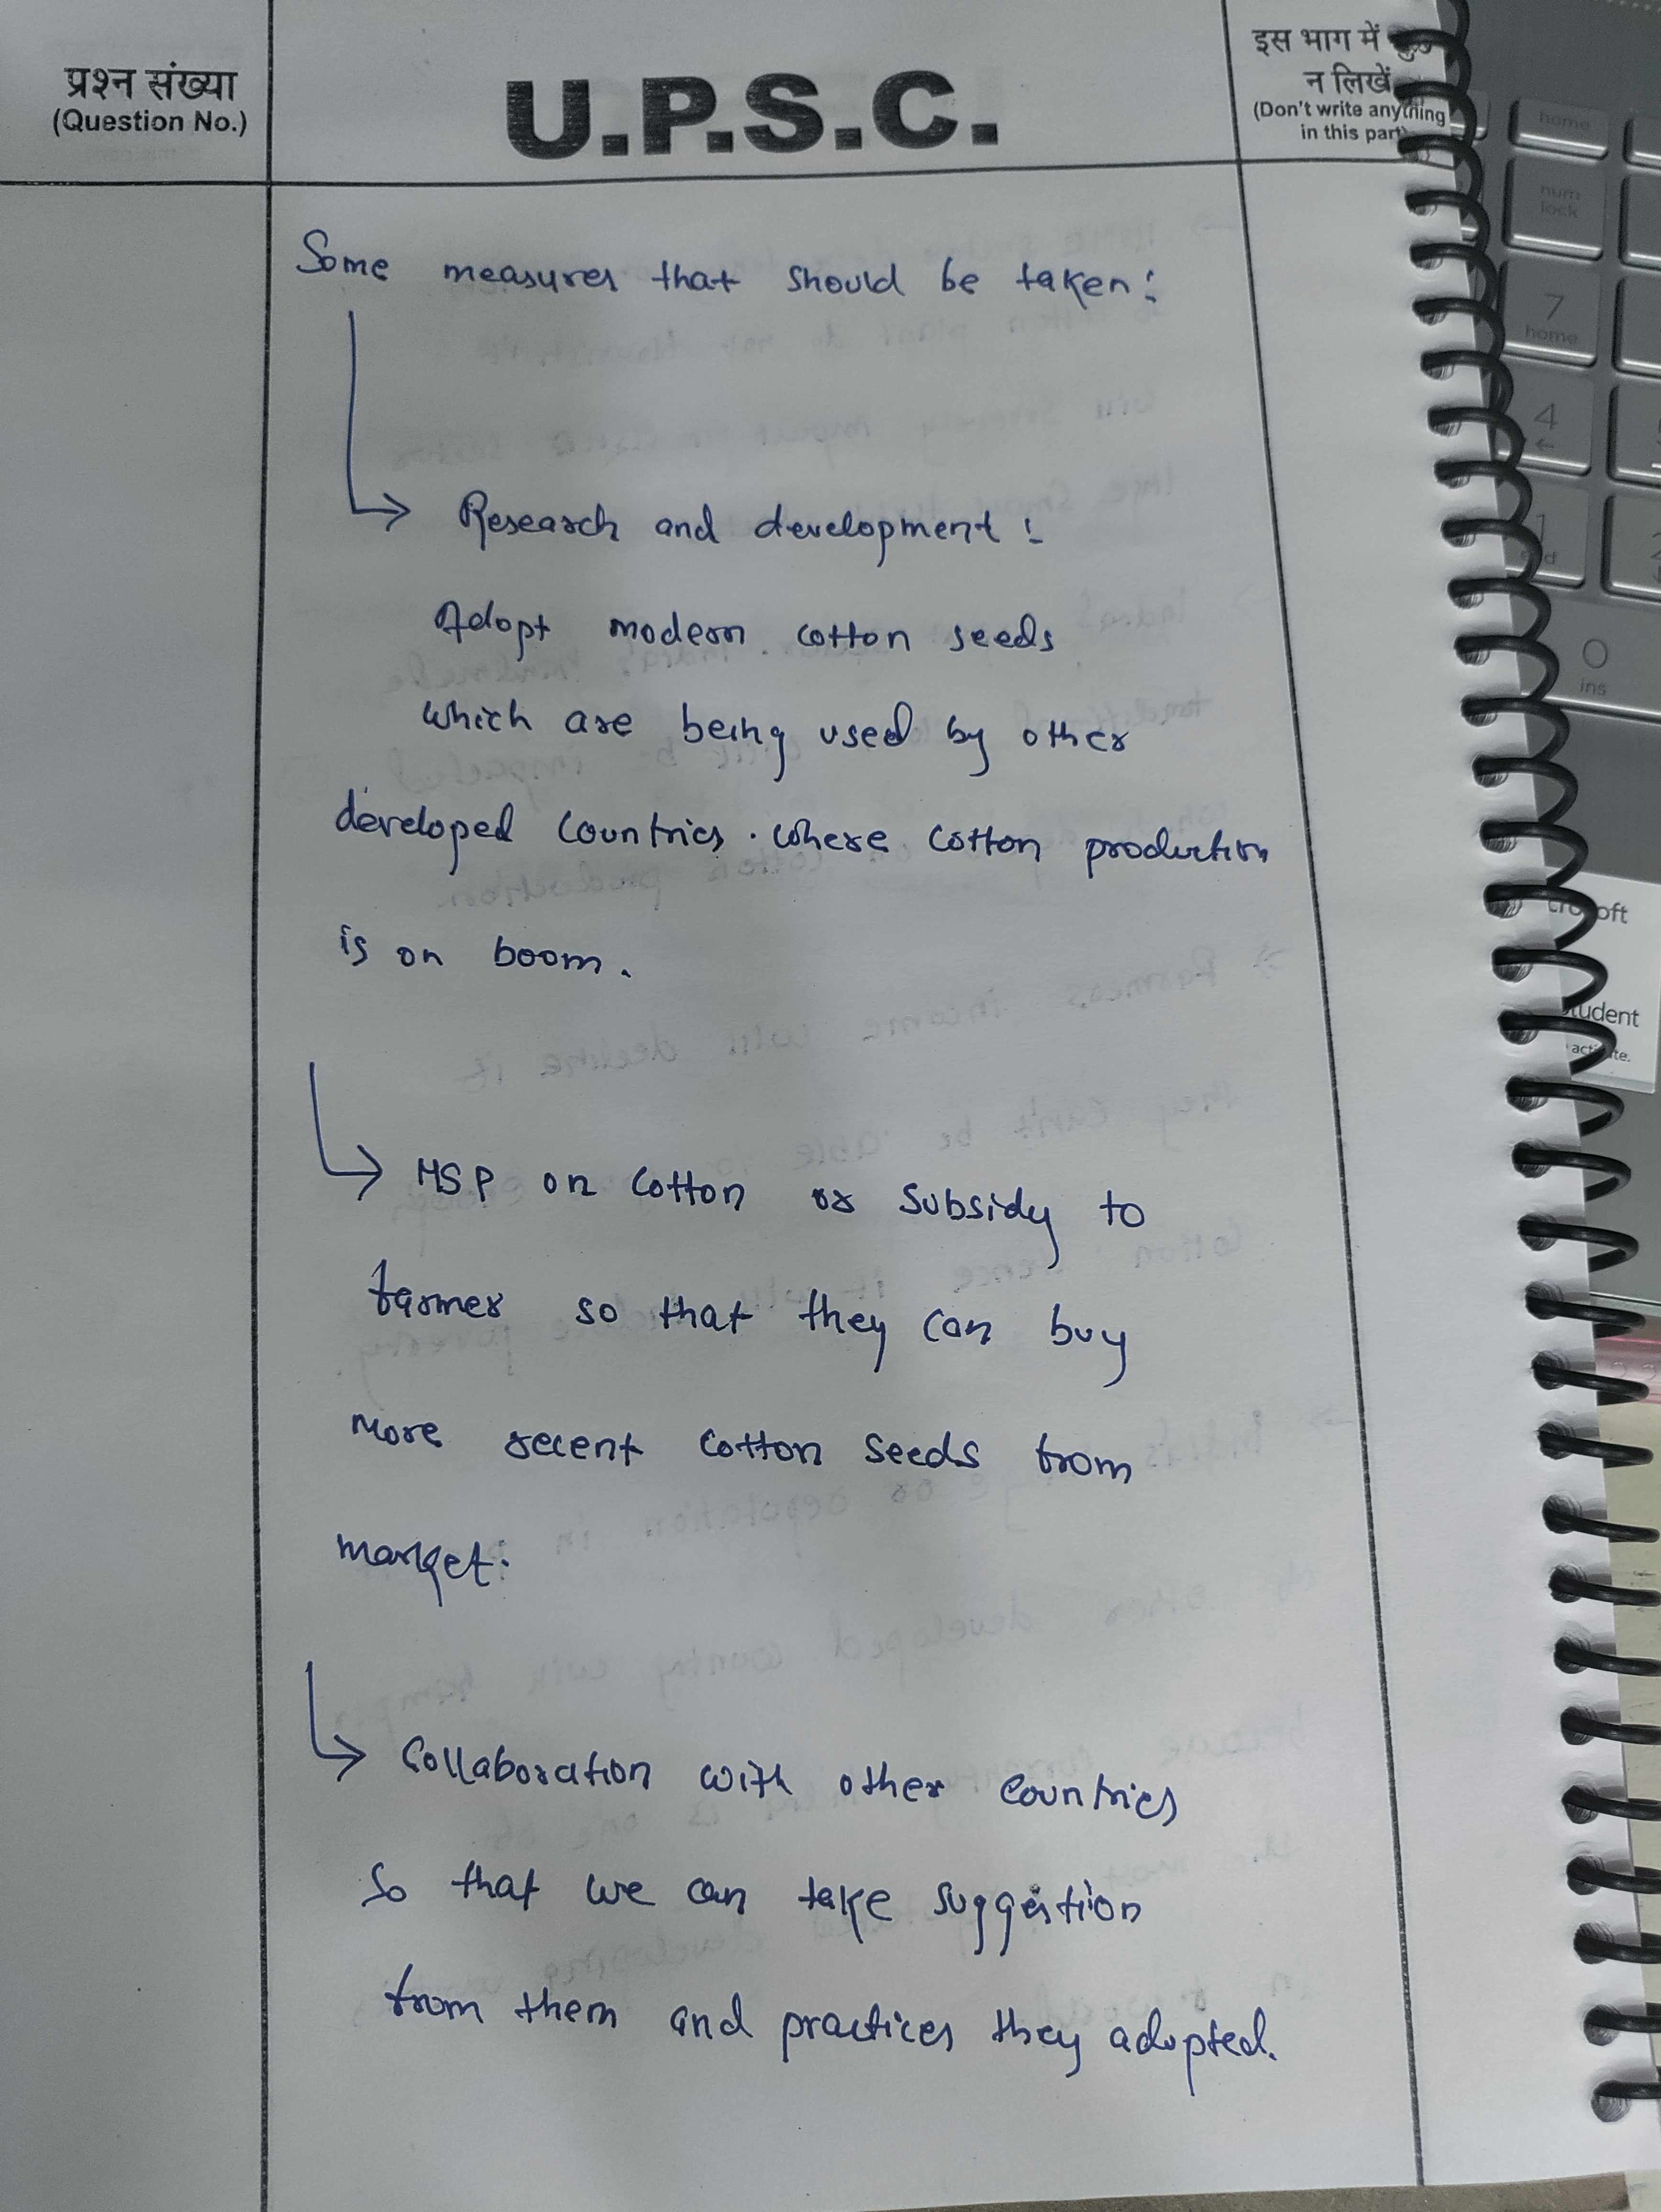 प्रश्न संख्या
(Question No.)
U.P.S.C.
इस भाग में कुछ
न लिखें
(Don't write anything
in this part)
Some measures that should be taken :
Research and development :
Adopt modern cotton seeds
which are being used by other
developed countries. where cotton production
is on boom.
MSP on cotton or subsidy to
farmer so that they can buy
more recent cotton seeds from
market.
Collaboration with other countries
so that we can take suggestion
from them and practices they adopted.
home
num
lock
7
home
4
1
0
ins